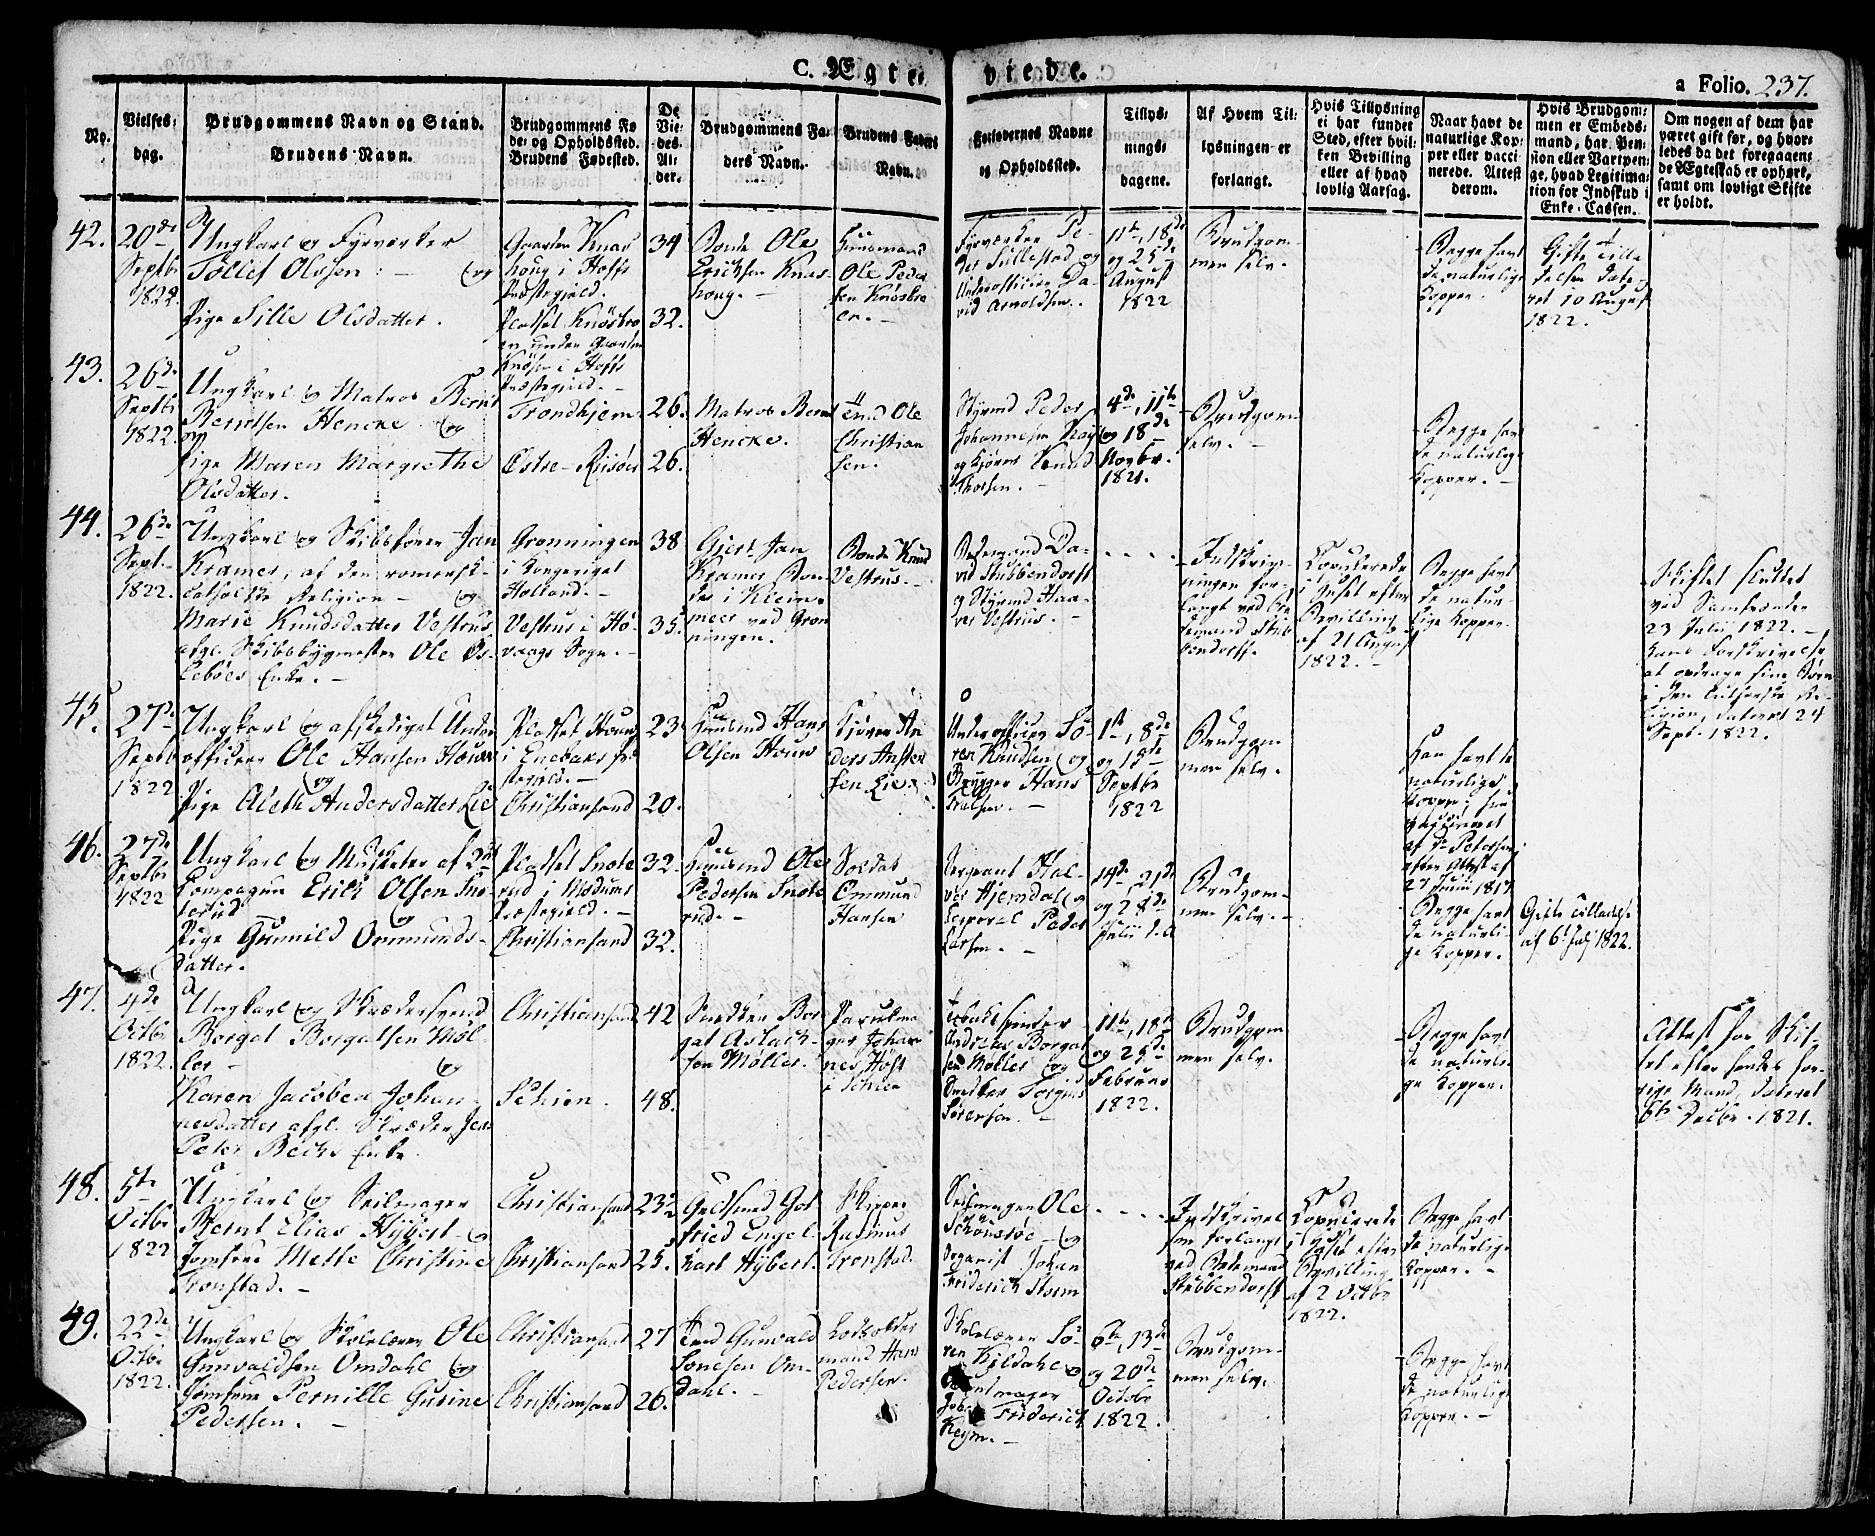 C. Ægteviede.
a Folio. 237.
No.
Vielses-
dag.
Brudgommens Navn og Stand.
Brudens Navn.
Brudgommens Fø
de- og Opholdssted.
Brudens Fødested.
De
Vie-
des
Al-
der.
Brudgommens Fa-
ders Navn.
Brudens Faders
Navn.
Forlovernes Navne
og Opholdssted.
Tillys-
nings-
dagene.
Af Hvem Til-
lysningen er
forlangt.
Hvis Tillysning
ei har fundet
Sted, efter hvil-
ken Bevilling
eller af hvad
lovlig Aarsag.
Naar havt de
naturlige Kop-
per eller vacci
nerede. Attest
derom.
Hvis Brudgom-
men er Embeds-
mand, har Pen-
sion eller Vartpen-
ge, hvad Legitima-
tion for Indskud i
Enke-Cassen.
Om nogen af dem har
været gift før, og hvor-
ledes da det foregaaen-
de Ægteskab er ophørt,
samt om lovligt Skifte
er holdt.
42.
20de
Septbr
1822
Ungkarl og Fyrværker
Tollef Olssen. — og
Pige Sille Olsdatter.
Gaarden Knas
houg i Hoffs
Præstegjeld.
Pladset Knøsbro
en under Gaarden
Knøsen i Hoffs
Præstegjeld. —
34
32.
Bonde Ole
Ericksen Knas-
houg. —
Huusmand
Ole Peder
sen Knøsbro
en. —
Fyrværker Pe-
der Sillestad og
Underofficier Da-
vid Arnoldsen.
11te, 18de
og 25de
August
1822
Brudgom-
men selv.
Begge havt
de naturlige
Kopper.
Gifte Tilla
delsen date-
ret 10 August
1822.
43.
26de
Septbr
1822.
Ungkarl og Matros Bernt
Berntsen Hencke. og
Pige Maren Margrethe
Olsdatter.
Trondhjem.
Østre-Riisøer
26.
26.
Matros Bernt
Hencke.
Tømd Ole
Christian
sen.
Styrmd Peder
Johannesen
og Kjører Knud
Thorsen. —
4de, 11te
og 18de
Novbr.
1821.
Brudgom
selv. —
Begge havt
de naturlige
Kopper. —
44.
26de
Sept.
1822.
Ungkarl og Skibsfører Jan
Kramer, af den romersk-
catholske Religion — og
Marie Knudsdatter Vestrus
afgl. Skibsbygmester Ole Os-
lebøes Enke. —
Grønningen
i Kongeriget
Holland. —
Vestrus i Hø-
vaags Sogn. —
38
35.
Giert Jan
Kramer Bon-
de i Klein-
meer ved Grøn
ningen.
Bonde Knud
Vestrus. —
Bedemand Da-
vid Stubbendorff
og Styrmd Haa-
ver Vestrus. —
Indskriv-
ningen for-
langt ved Be
demand Stub
bendorff.
Copulerede
i Huset efter
Bevilling
af 21 August
1822. —
Begge havt
de natur-
lige Kopper.
Skiftet sluttet
ved Samfrænder
23 Julii 1822. —
Hans Forskrivelse
at opdrage sine Børn
i den Lutherske Re-
ligion, dateret 24
Sept. 1822.
45.
27de
Septbr
1822
Ungkarl og afskediget Under
officeer Ole Hansen Houer
og
Pige Aleth Andersdatter Lie
Pladset Houer
i Enebaks Præ
stegjeld. —
Christiansand
23
20.
Huusmd Hans
Olsen Houer
Kjører An
ders Ansten
sen Lie.
Underofficier Sø-
ren Knudsen og
Brygger Hans
Nielsen. —
1ste, 8de
og 15de
Septbr
1822
Brudgom
men selv.
Han havt de
naturlige
Kopper; hun
vaccineret
af Dr. Petersen
efter Attest af
27 Junii 1817.
46.
27de
Septbr
1822
Ungkarl og Musketer af 2det
Compagnie Erick Olsen Sno
terud og
Pige Gunnild Ommunds-
datter.
Pladset Snote
rud i Modums
Præstegjeld. —
Christiansand
32.
32.
Huusmd Ole
Pedersen Snote
rud. —
Soldat
Ommund
Hansen
Sergeant Hal-
vor Hjemdal og
Corporal Peder
Larsen. —
14de, 21de
og 28de
Julii d. A.
Brudgom-
men selv. —
Begge havt
de naturli-
ge Kopper.
Gifte Tilladelse
af 6t Julj 1822.
47.
4de
Octbr
1822.
Ungkarl og Skrædersvend
Borgat Borgatsen Møl-
ler — og
Karen Jacobea Johan-
nesdatter afgl. Skræder Jens
Peter Bechs Enke
Christiansand
Schien.
42
48.
Snedker Bor
gat Aslach-
sen Møller.
Parukma
ger Johan
nes Høst
i Schien
Tobakspinder
Andreas Borgat
sen Møller og
Snedker Torgius
Sørensen. —
11te, 18de
og 25de
Februar
1822.
Brudgom
men selv.
Begge havt
de naturli-
ge Kopper.
Attest for Skif-
tet efter hendes for-
rige Mand, dateret
6te Decbr. 1821.
48.
5te
Octbr
1822
Ungkarl og Seilmager
Bernt Elias Hÿbert — og
Jomfrue Mette Christine
Tronstad. —
Christiansand
Christiansand
23½
25.
Guldsmd Got
fried Engel-
hart Hÿbert.
Skipper
Rasmus
Tronstad.
Seilmager Ole
Schønsøe — og
Organist Johan
Friderick Sturm
Indskrivel
sen forlangt
ved Bedemand
Stubbendorff
Copulerede
i Huset efter
Bevilling
af 2 Octbr
1822.
Begge havt
de naturlige
Kopper. —
49.
22de
Octbr
1822.
Ungkarl og Skolelærer Ole
Gunvaldsen Omdahl og
Jomfrue Pernille Gurine
Pedersen. —
Christiansand
Christiansand
27
26.
Tømd Gunvald
Tonesen Om-
dahl. —
mand Hans
Pedersen.
Skolelærer Sø-
ren Kjeldahl og
Friderich
Keym. —
6te, 13de
og 20de
Octobr
1822.
Brudgom-
men selv.
Begge havt
de naturlige
Kopper. —